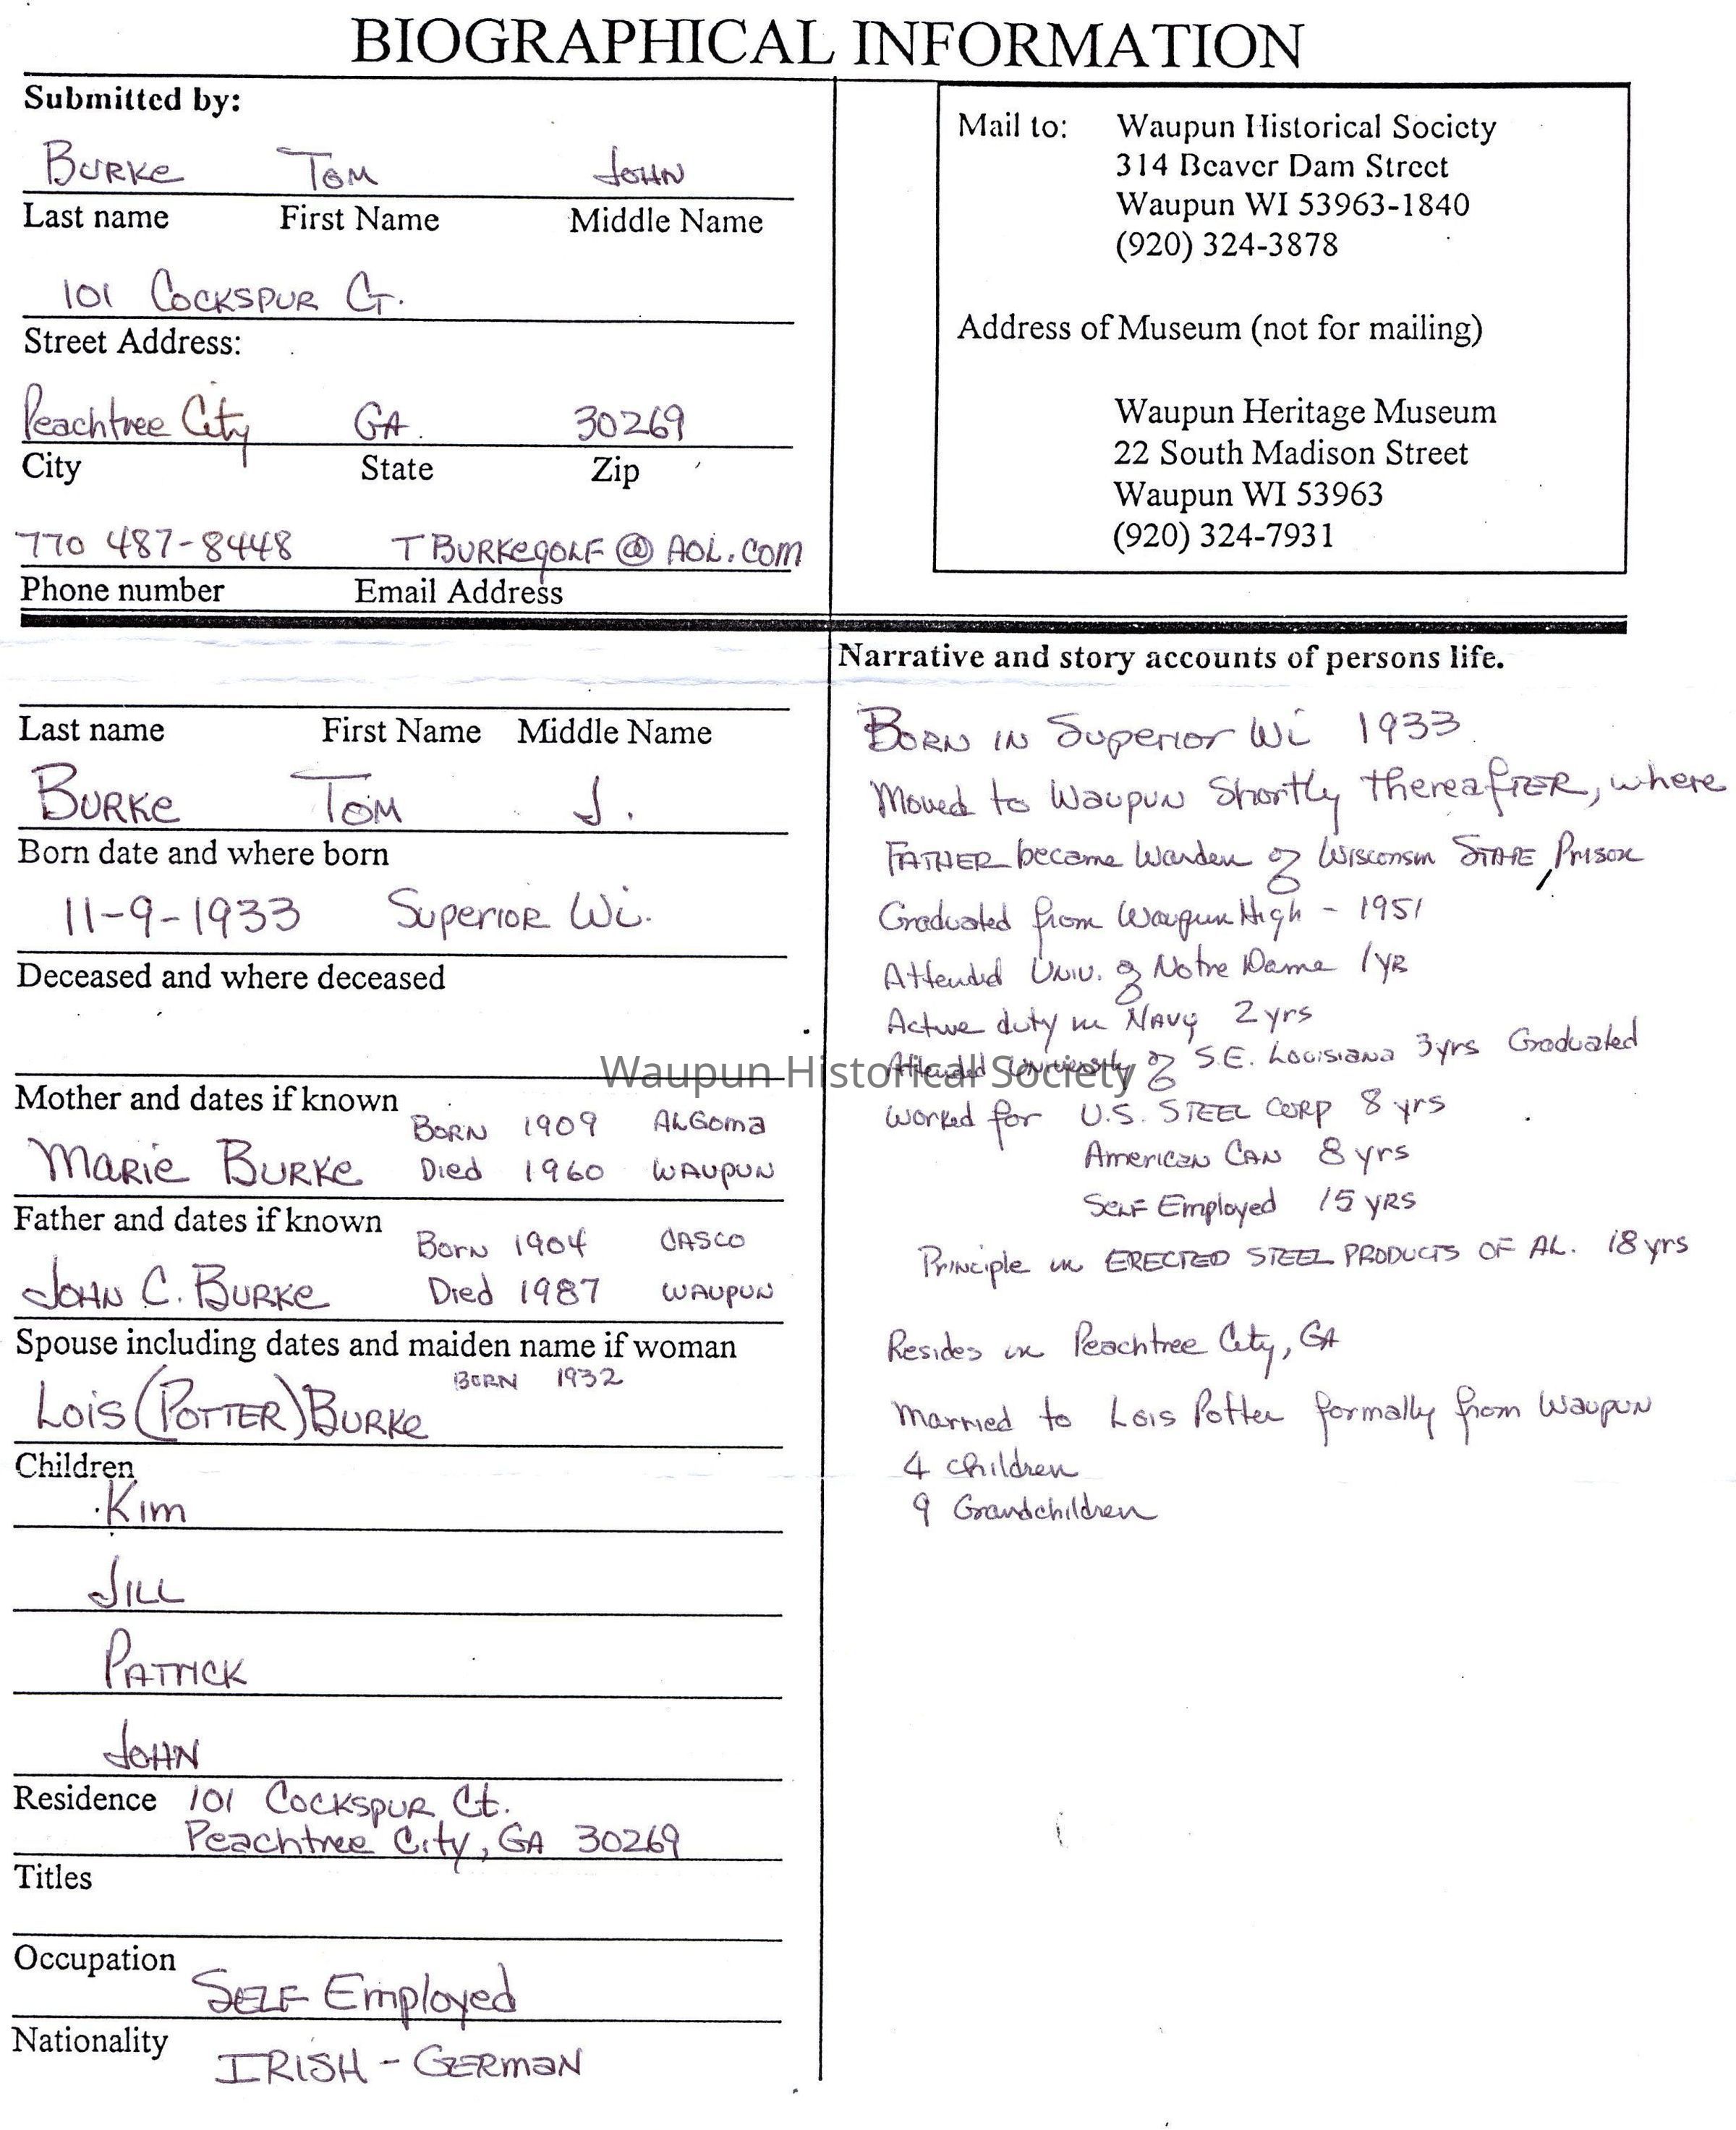 BIOGRAPHICAL INFORMATION
Submitted by:
BURKE TOM JOHN
Last name First Name Middle Name
101 COCKSPUR CT.
Street Address:
Peachtree City GA. 30269
City State Zip
770 487-8448 TBURKEGOLF@AOL.COM
Phone number Email Address
Mail to: Waupun Historical Society
314 Beaver Dam Street
Waupun WI 53963-1840
(920) 324-3878
Address of Museum (not for mailing)
Waupun Heritage Museum
22 South Madison Street
Waupun WI 53963
(920) 324-7931
Last name First Name Middle Name
BURKE TOM J.
Born date and where born
11-9-1933 SUPERIOR Wi.
Deceased and where deceased
Mother and dates if known
BORN 1909 ALGOMA
MARIE BURKE Died 1960 WAUPUN
Father and dates if known
Born 1904 CASCO
JOHN C. BURKE Died 1987 WAUPUN
Spouse including dates and maiden name if woman
BORN 1932
LOIS (POTTER) BURKE
Children
Kim
JILL
PATRICK
JOHN
Residence 101 COCKSPUR Ct.
Peachtree City, GA 30269
Titles
Occupation
SELF Employed
Nationality
IRISH - GERMAN
Narrative and story accounts of persons life.
BORN IN Superior Wi 1933
Moved to Waupun Shortly thereafTER, where
FATHER became Warden of Wisconsin STATE Prison
Graduated from Waupun High - 1951
Attended Univ. of Notre Dame 1 yr
Active duty in NAVY 2 yrs
Attended University of S.E. Louisiana 3 yrs Graduated
Worked for U.S. STEEL CORP 8 yrs
American CAN 8 yrs
SELF Employed 15 YRS
Principle in ERECTED STEEL PRODUCTS OF AL. 18 yrs
Resides in Peachtree City, GA
Married to Lois Potter formally from Waupun
4 children
9 Grandchildren
Waupun Historical Society